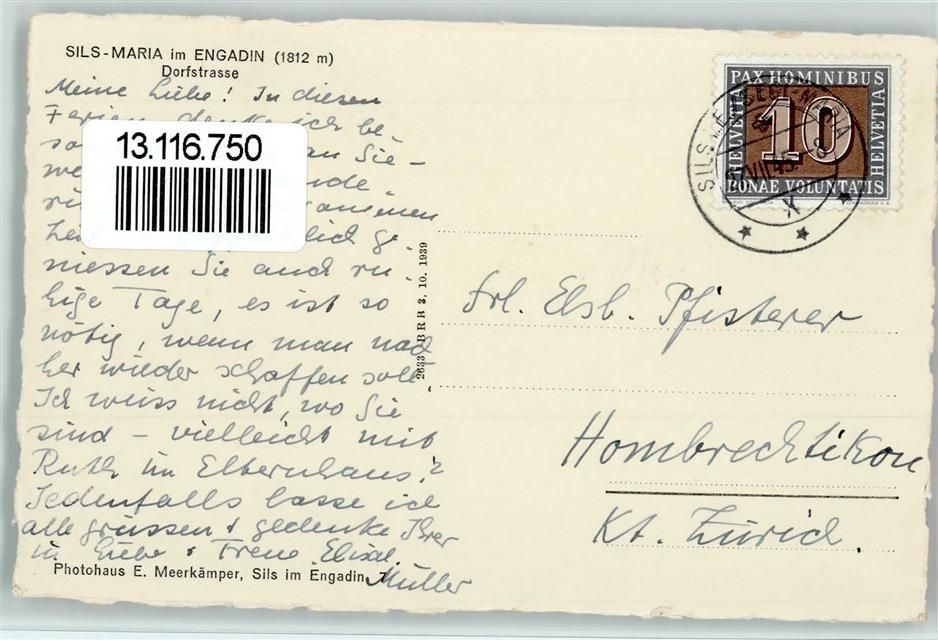 SILS-MARIA im ENGADIN (1812 m)
Dorfstrasse
Meine Liebe! In diesen
Ferien denke ich be-
an Sie -
13.116.750
niessen Sie auch ru-
hige Tage, es ist so
nötig, wenn man nach
her wieder schaffen soll.
Ich weiss nicht, wo Sie
sind - vielleicht mit
Ruth im Elternhaus?
Jedenfalls lasse ich
alle grüssen & gedenke Ihrer
in Liebe & Treue
Müller
Photohaus E. Meerkämper, Sils im Engadin
2633 BRB 3. 10. 1939
PAX HOMINIBUS
HELVETIA
10
HELVETIA
BONAE VOLUNTATIS
Frl. Elsb. Pfisterer
Hombrechtikon
Kt. Zürich.